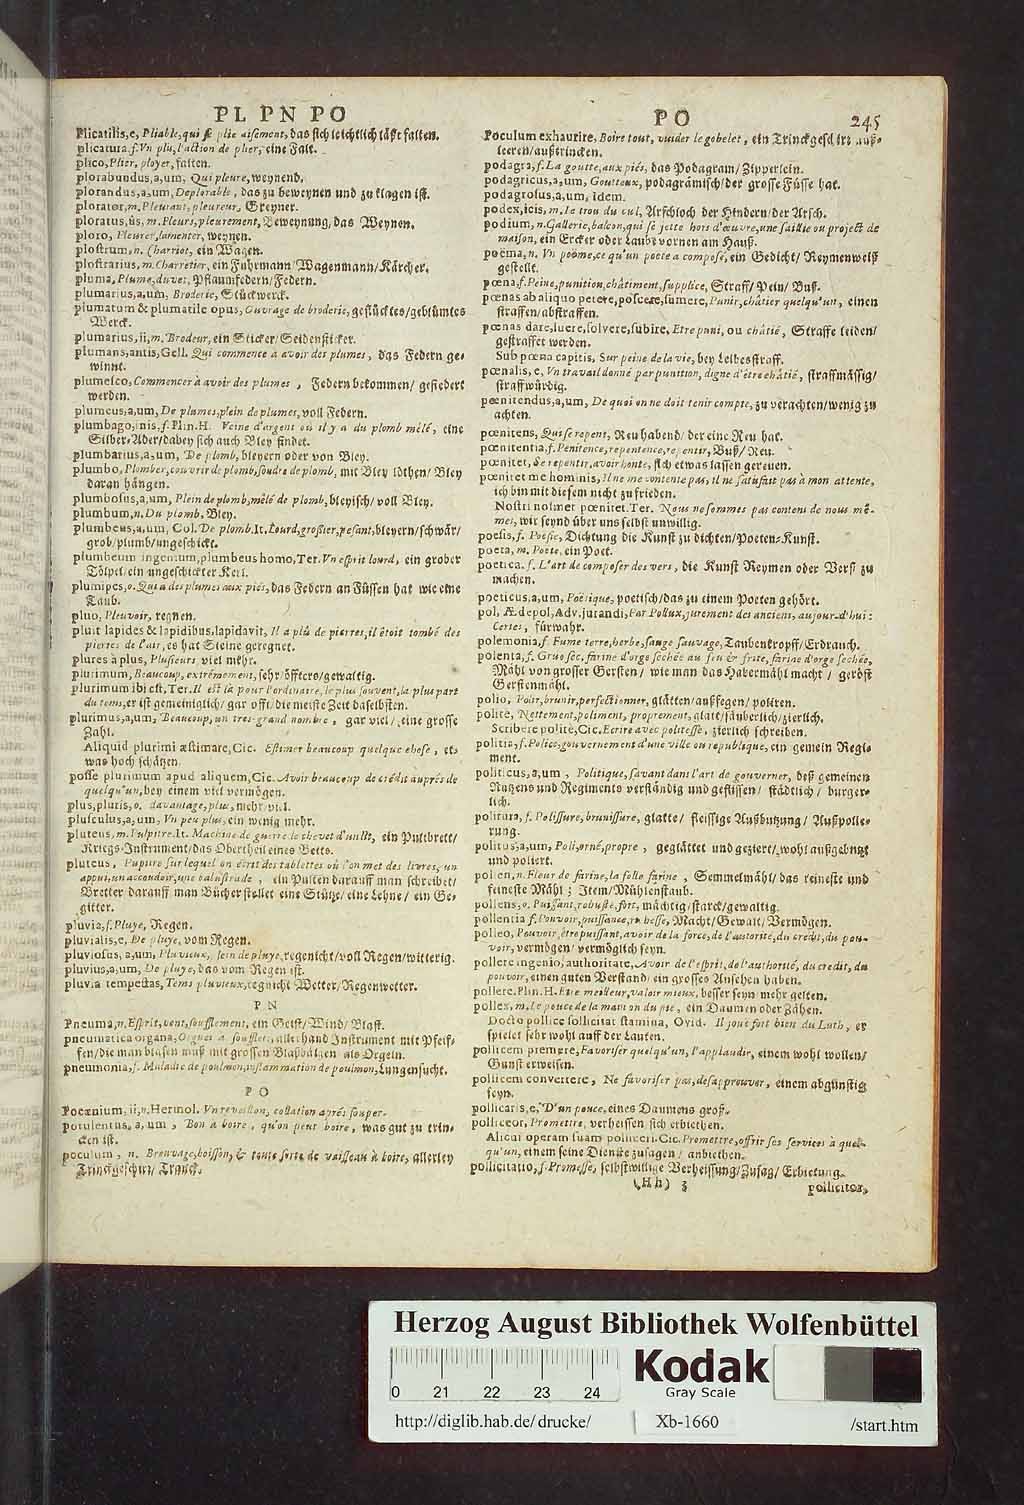 PL PN PO
Plicatilis,e, Pliable,qui se plie aisement, das sich leichtlich läst falten.
plicatura,f. Vn plu,l'action de plier, eine Falt.
plico, Plier, ployer, falten.
plorabundus,a,um, Qui pleure, weynend.
plorandus,a,um, Deplorable, das zu beweynen und zu klagen ist.
plorator,m. Pleurant, pleureur, Greyner.
ploratus,ûs, m. Pleurs, pleurement, Beweynung, das Weynen.
ploro, Pleurer, lamenter, weynen.
plostrum,n. Charriot, ein Wagen.
plostrarius,m. Charretier, ein Fuhrmann/Wagenmann/Kärcher.
pluma, Plume,duvet, Pflaumfedern/Federn.
plumarius,a,um, Broderie, Stückwerck.
plumatum & plumatile opus, Ouvrage de broderie, gestücktes/geblümtes
Werck.
plumarius,ii,m. Brodeur, ein Sticker/Seidensticker.
plumans,antis,Gell. Qui commence a avoir des plumes, das Federn ge-
winnt.
plumesco, Commencer à avoir des plumes, Federn bekommen/ gefiedert
werden.
plumeus,a,um, De plumes,plein de plumes, voll Federn.
plumbago,inis,f.Plin.H. Veine d'argent où il y a du plomb mêlé, eine
Silber-Ader/dabey sich auch Bley findet.
plumbarius,a,um, De plomb, bleyern oder von Bley.
plumbo, Plomber,couvrir de plomb,soudre de plomb, mit Bley löthen/ Bley
daran hängen.
plumbosus,a,um, Plein de plomb,mêlé de plomb, bleyisch/ voll Bley.
plumbum,n. Du plomb, Bley.
plumbeus,a,um, Col. De plomb. It. Lourd,grossier,pesant, bleyern/schwär/
grob/plumb/ungeschickt.
plumbeum ingenium,plumbeus homo,Ter. Vn esprit lourd, ein grober
Tölpel/ein ungeschickter Kerl.
plumipes,o. Qui a des plumes aux piés, das Federn an Füssen hat wie eine
Taub.
pluo, Pleuvoir, regnen.
pluit lapides & lapidibus, lapidavit, Il a plû de pierres,il étoit tombé des
pierres de l'air, es hat Steine geregnet.
plures à plus, Plusieurs viel mehr.
plurimum, Beaucoup, extrémement, sehr/öffters/gewaltig.
plurimum ibi est, Ter. Il est là pour l'ordinaire, le plus souvent, la plus part
du tems, er ist gemeiniglich/ gar offt/ die meiste Zeit daselbsten.
plurimus,a,um, Beaucoup, un tres-grand nombre, gar viel/ eine grosse
Zahl.
Aliquid plurimi æstimare, Cic. Estimer beaucoup quelque chose, et-
was hoch schätzen.
posse plurimum apud aliquem, Cic. Avoir beaucoup de crédit auprés de
quelqu'un, bey einem viel vermögen.
plus,pluris, o. davantage, plus, mehr/viel.
plusculus,a,um, Vn peu plus, ein wenig mehr.
pluteus, m. Pulpitre. It. Machine de guerre le chevet d'un lit, ein Pultbrett/
Kriegs-Instrument/das Obertheil eines Betts.
pluteus, Pupitre sur lequel on écrit des tablettes où l'on met des livres, un
appui,un accoudoir,une balustrade, ein Pulten darauff man schreibet/
Bretter darauff man Bücher stellet eine Stütze/ eine Lehne/ ein Ge-
gitter.
pluvia,f. Pluye, Regen.
pluvialis,e, De pluye, vom Regen.
pluviosus,a,um, Pluvieux, plein de pluye, regenicht/voll Regen/witterig.
pluvius,a,um, De pluye, das vom Regen ist.
pluvia tempestas, Tems pluvieux, regnicht Wetter/Regenwetter.
P N
Pneuma,n. Esprit,vent,soufflement, ein Geist/ Wind/ Blast.
pneumatica organa, Orgues à soufflets, allerhand Instrument mit Pfeif-
fen/die man blasen muß mit grossen Blaßbälgen als Orgeln.
pneumonia,f. Maladie de poulmon,inflammation de poulmon, Lungensucht.
P O
Pocœnium,ii,n.Hermol. Vn reveillon, collation aprés souper.
potulentus,a,um, Bon à boire, qu'on peut boire, was gut zu trin-
cken ist.
poculum, n. Breuvage,boisson, & toute sorte de vaisseau à boire, allerley
Trinckgeschirr/ Tranck.
PO 245
Poculum exhaurire, Boire tout, vuider le gobelet, ein Trinckgeschirr auß-
leeren/außtrincken.
podagra,f. La goutte,aux piés, das Podagram/ Zipperlein.
podagricus,a,um, Goutteux, podagrämisch/der grosse Füsse hat.
podagrosus,a,um, idem.
podex,icis,m. le trou du cul, Arschloch der Hindern/der Arsch.
podium,n. Gallerie,balcon,qui se jette hors d'œuvre,une saillie ou project de
maison, ein Ercker oder Laube vornen am Hauß.
poëma,n. Vn poëme,ce qu'un poete a composé, ein Gedicht/ Reymenweiß
gestellt.
pœna,f. Peine,punition,châtiment,supplice, Straff/ Pein/ Buß.
pœnas ab aliquo petere,poscere,sumere, Punir,châtier quelqu'un, einen
straffen/abstraffen.
pœnas dare,luere,solvere,subire, Etre puni, ou châtié, Straffe leiden/
gestraffet werden.
Sub pœna capitis, Sur peine de la vie, bey Leibesstraff.
pœnalis,e, Vn travail donné par punition, digne d'être châtié, straffmässig/
straffwürdig.
pœnitendus,a,um, De quoi on ne doit tenir compte, zu verachten/wenig zu
achten.
pœnitens, Qui se repent, Reu habend/ der eine Reu hat.
pœnitentia,f. Penitence,repentence,repentir, Buß/ Reu.
pœnitet, Se repentir,avoir honte, sich etwas lassen gereuen.
pœnitet me hominis, Il ne me contente pas, il ne satisfait pas à mon attente,
ich bin mit diesem nicht zu frieden.
Nostri nosmet pœnitet. Ter. Nous ne sommes pas contens de nous mê-
mes, wir seynd über uns selbst unwillig.
poësis,f. Poësie, Dichtung die Kunst zu dichten/Poeten-Kunst.
poeta, m. Poete, ein Poet.
poëtica,f. L'art de composer des vers, die Kunst Reymen oder Verß zu
machen.
poëticus,a,um, Poëtique, poetisch/das zu einem Poeten gehört.
pol, Ædepol, Adv.jurandi, Par Pollux,jurement des anciens, aujour-d'hui:
Certes, fürwahr.
polemonia,f. Fume terre,herbe,sauge sauvage, Taubenkropff/Erdrauch.
polenta,f. Gruosec,farine d'orge sechée au feu & frite, farine d'orge sechée,
Mähl von grosser Gersten/ wie man das Habermähl macht/ geröst
Gerstenmähl.
polio, Polir,brunir,perfectionner, glätten/außfegen/ poliren.
politè, Nettement,poliment, proprement, glatt/säuberlich/zierlich.
Scribere politè, Cic. Ecrire avec politesse, zierlich schreiben.
politia,f. Police,gouvernement d'une ville ou republique, ein gemein Regi-
ment.
politicus,a,um, Politique, savant dans l'art de gouverner, deß gemeinen
Nutzens und Regiments verständig und geflissen/ städtlich/ burger-
lich.
politura, f. Polissure, brunissure, glätte/ fleissige Außbutzung/ Außpolie-
rung.
politus,a,um, Poli,orné,propre, geglättet und geziert/ wohl außgebutzt
und poliert.
pollen,n. Fleur de farine,la folle farine, Semmelmähl/ das reineste und
feineste Mähl; Item/Mühlenstaub.
pollens,o. Puissant,robuste,fort, mächtig/starck/gewaltig.
pollentia f. Pouvoir,puissance,richesse, Macht/ Gewalt/ Vermögen.
polleo, Pouvoir,être puissant, avoir de la force,de l'autorité,du credit,du pou-
voir, vermögen/ vermöglich seyn.
pollere ingenio,authoritate, Avoir de l'esprit,de l'authorité, du credit, du
pouvoir, einen guten Verstand/ ein grosses Ansehen haben.
pollere. Plin.H. Etre meilleur,valoir mieux, besser seyn mehr gelten.
pollex, m. le pouce de la main ou du pié, ein Daumen oder Zähen.
Docto pollice sollicitat stamina, Ovid. Il joue fort bien du Luth, er
spielet sehr wohl auff der Lauten.
pollicem premere, Favoriser quelqu'un, l'applaudir, einem wohl wollen/
Gunst erweisen.
pollicem convertere, Ne favoriser pas,desapprouver, einem abgünstig
seyn.
pollicaris,e, D'un pouce, eines Daumens groß.
polliceor, Promettre, verheissen sich erbiethen.
Alicui operam suam polliceri. Cic. Promettre,offrir ses services à quel-
qu'un, einem seine Dienste zusagen/ anbiethen.
pollicitatio, f. Promesse, selbstwillige Verheissung/Zusag/ Erbietung.
(Hh) 3 pollicitor,
Herzog August Bibliothek Wolfenbüttel
Kodak
Gray Scale
0 21 22 23 24
http://diglib.hab.de/drucke/ Xb-1660 /start.htm